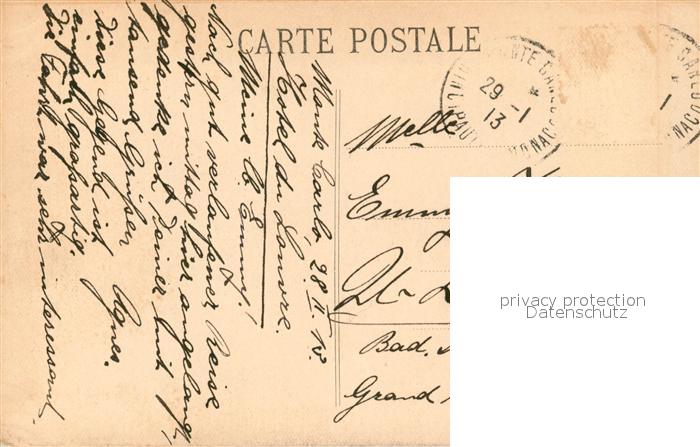 CARTE POSTALE
MONTE CARLO
29 -1
13
MONACO
Monte Carlo, 28 II
Hotel du Louvre.
Meine lb Emmy!
Nach gut verlaufener Reise
gestern mittag hier angelangt,
gedenke ich Deiner mit
tausend Grüßen
Agnes.
Diese Gegend ist
einfach großartig.
Die Fahrt war sehr interessant.
Melle
Bad.
Grand
privacy protection
Datenschutz